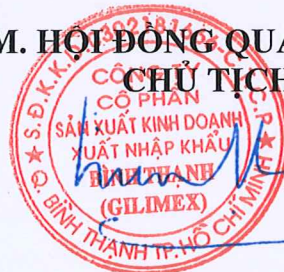 M. HỘI ĐỒNG QUẢ
CHỦ TỊCH
CÔNG TY
CỔ PHẦN
SẢN XUẤT KINH DOANH
XUẤT NHẬP KHẨU
BÌNH THẠNH
(GILIMEX)
Q. BÌNH THẠNH TP. HỒ CHÍ MINH